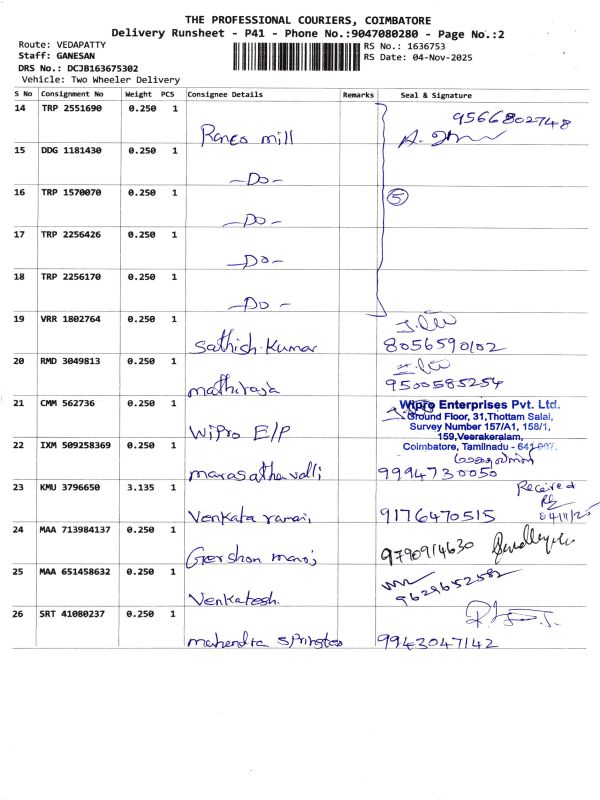 THE PROFESSIONAL COURIERS, COIMBATORE
Delivery Runsheet - P41 - Phone No.:9047080280 - Page No.:2
Route: VEDAPATTY
RS No.: 1636753
Staff: GANESAN
RS Date: 04-Nov-2025
DRS No.: DCJB163675302
Vehicle: Two Wheeler Delivery
S No Consignment No Weight PCS Consignee Details Remarks Seal & Signature
14 TRP 2551690 0.250 1
Ranco mill
9566802748
15 DDG 1181430 0.250 1
-Do-
16 TRP 1570070 0.250 1
5
-Do-
17 TRP 2256426 0.250 1
-Do-
18 TRP 2256170 0.250 1
-Do-
19 VRR 1802764 0.250 1
Sathish.Kumar 8056590102
20 RMD 3049813 0.250 1
mathiraja 9500585254
21 CMM 562736 0.250 1
WiPro E/P
Wipro Enterprises Pvt. Ltd.
Ground Floor, 31,Thottam Salai,
Survey Number 157/A1, 158/1,
159,Veerakeralam,
Coimbatore, Tamilnadu - 641 007.
22 IXM 509258369 0.250 1
marasathavalli 9994730050
23 KMU 3796650 3.135 1
Received
04/11/25
Venkata ramani 9176470515
24 MAA 713984137 0.250 1
Gershon manoj 9790914630
25 MAA 651458632 0.250 1
Venkatesh. 9629652582
26 SRT 41080237 0.250 1
mahendra sprintes 9943047142